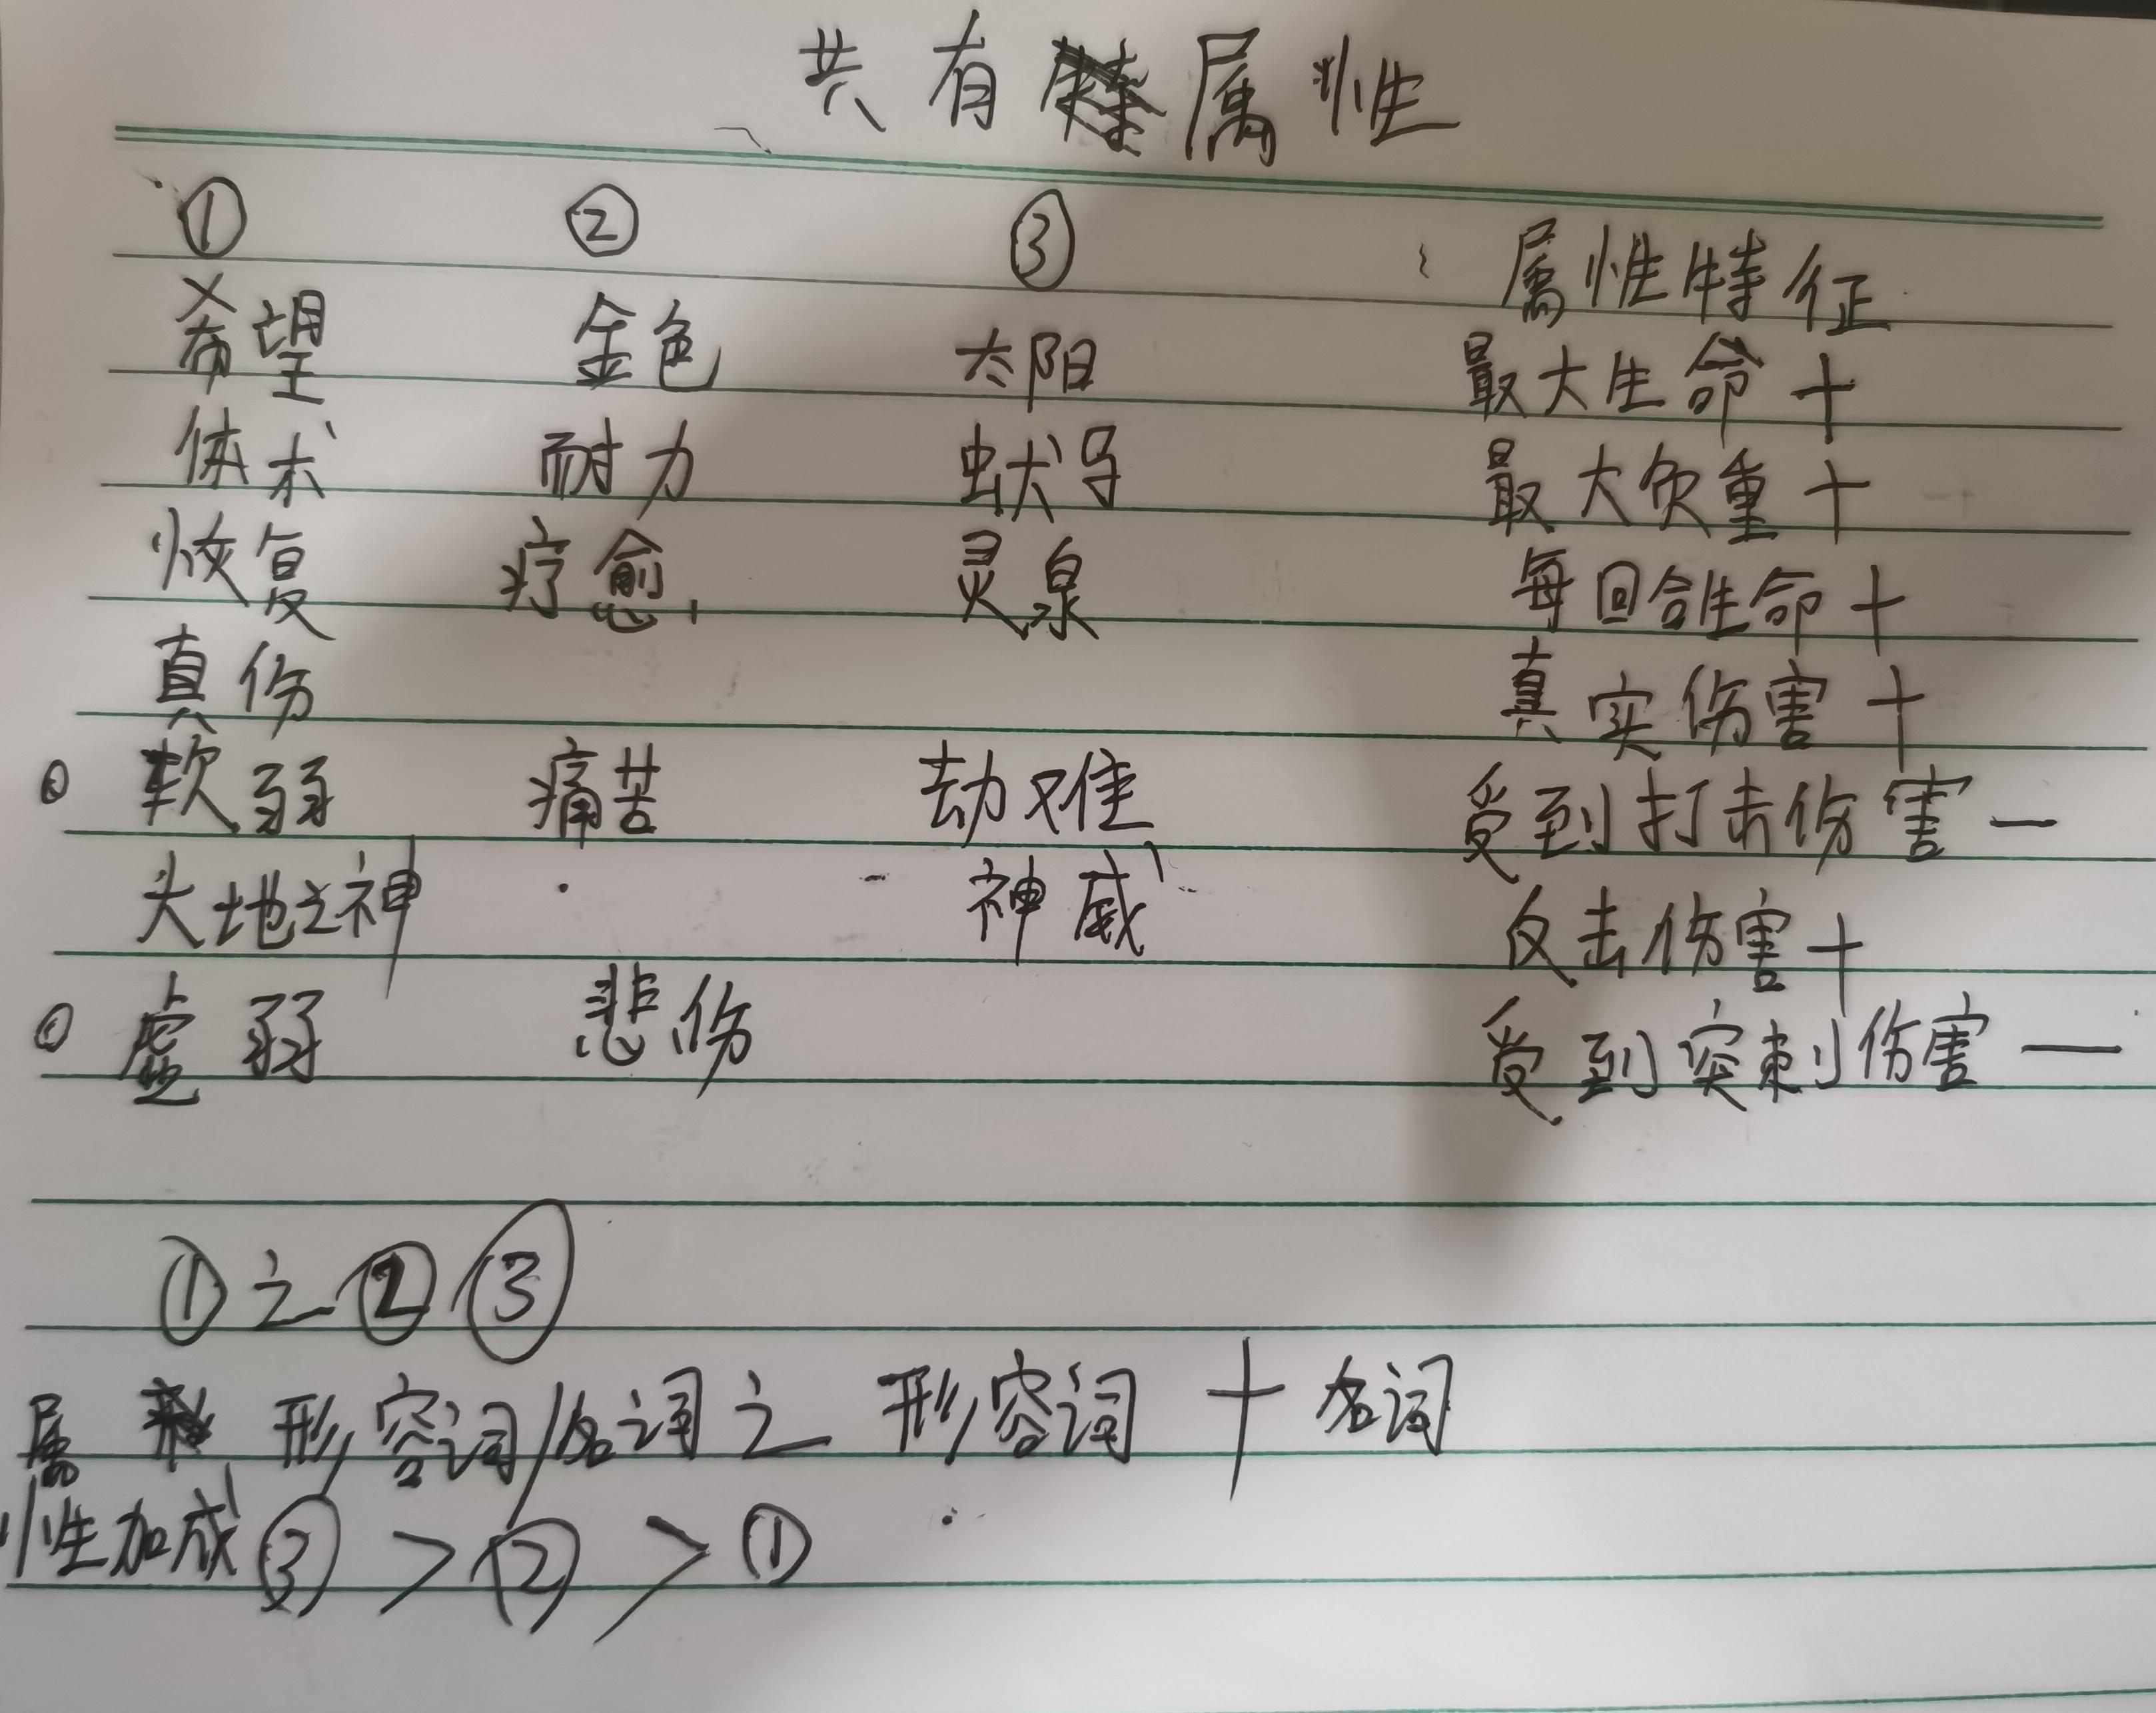 共有属性
① ② ③ 属性特征
希望 金色 太阳 最大生命+
体术 耐力 蚁弓 最大负重+
恢复 疗愈 灵泉 每回合生命+
真伤 真实伤害+
软弱 痛苦 劫难 受到打击伤害-
大地之神 神威 反击伤害+
虚弱 悲伤 受到突刺伤害-
①之②③
属 形容词/名词之 形容词+名词
性加成③>②>①